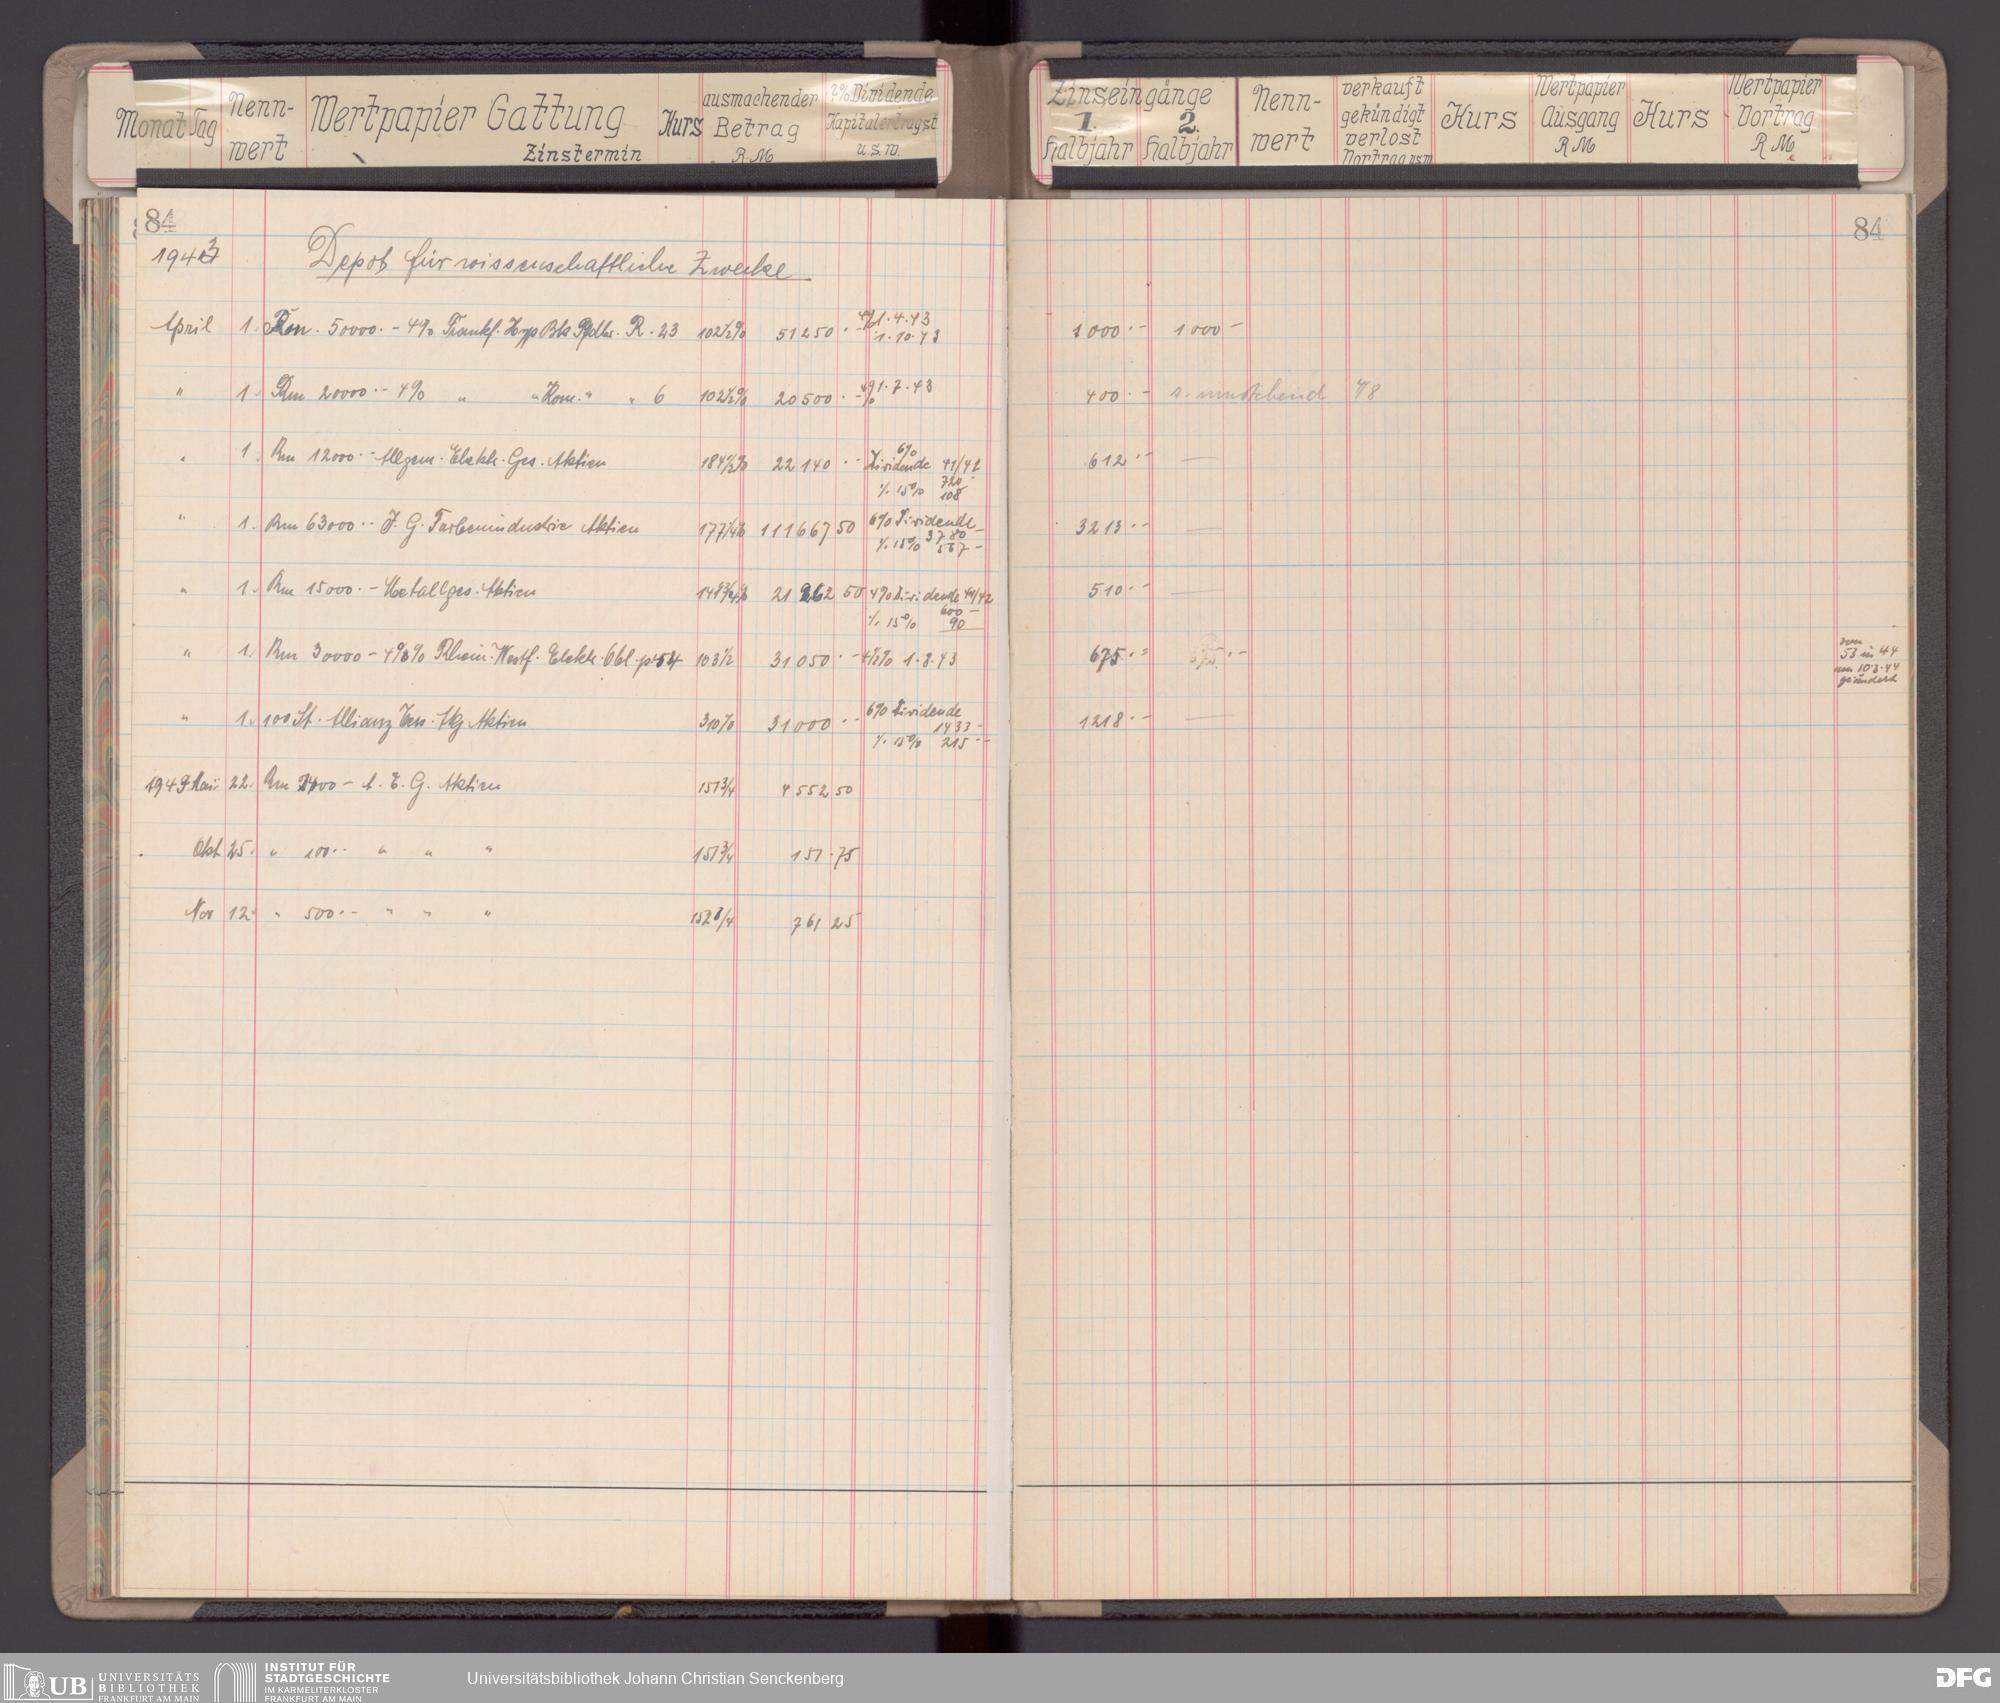 Monat Tag Nenn-wert Wertpapier Gattung Zinstermin Kurs ausmachender Betrag R.M. 2% Dividende Kapitalertragst. u.s.w.
Zinseingänge 1. Halbjahr 2. Halbjahr Nenn-wert verkauft gekündigt verlost Vortrag usw Kurs Wertpapier Ausgang R.M. Kurs Wertpapier Vortrag R.M.
84 84
1943 Depot für wissenschaftliche Zwecke
April 1. 50000.- 4% Frankf. Hyp Bk Pfdbr. R. 23 102½% 51250.- 1.4.43 1.10.43 1000.- 1000-
" 1. Rm 20000.- 4% " " Kom. " " 6 102½% 20500.- 1.7.43 400.-
" 1. Rm 12000.- Allgem. Elektr. Ges. Aktien 184½% 22140.- 6% Dividende 41/42 720 612.- —
·/. 15% 108
" 1. Rm 63000.- J. G. Farbenindustrie Aktien 177¼% 111667 50 6% Dividende 3780 3213.- —
·/. 15% 567-
" 1. Rm 15000.- Metallges. Aktien 50 4% Dividende 41/42 600- 510.- —
·/. 15% 90
" 1. Rm 30000- 4½% Rhein. Westf. Elektr. Obl. 103½ 31050.- 4½% 1.8.43 675.-
vom
53 in 44
am 10.3.44
geändert
" 1. 100 St. Allianz Vers. Ag Aktien 310% 31000.- 6% Dividende 1433- 1218.- —
·/. 15% 215.-
Mai 22. Rm A. E. G. Aktien 151¾ 4552 50
Okt 25. " 100.- " " " 151¾ 151.75
Nov 12. " 500.- " " " 761 25
UB UNIVERSITÄTS BIBLIOTHEK FRANKFURT AM MAIN
INSTITUT FÜR STADTGESCHICHTE IM KARMELITERKLOSTER FRANKFURT AM MAIN
Universitätsbibliothek Johann Christian Senckenberg
DFG